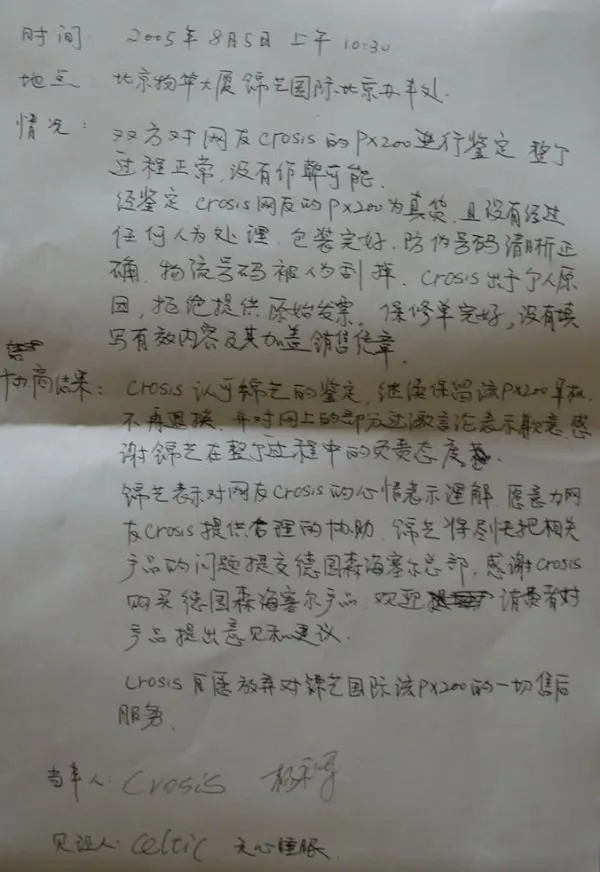 时间: 2005年8月5日 上午 10:30
地点 北京物华大厦锦艺国际北京办事处.
情况: 双方对网友Crosis的PX200进行鉴定 整个
过程正常,没有作弊可能.
经鉴定 Crosis网友的PX200为真货,且没有经过
任何人为处理,包装完好,防伪号码清晰正
确,物流号码被人为刮掉. Crosis出于个人原
因,拒绝提供原始发票, 保修单完好,没有填
写有效内容及其加盖销售凭章.
协商结果: Crosis认可锦艺的鉴定,继续保留该PX200耳机,
不再退换,并对网上的部分过激言论表示歉意,感
谢锦艺在整个过程中的负责态度.
锦艺表示对网友Crosis的心情表示理解 愿意为网
友Crosis提供合理的协助,锦艺将尽快把相关
产品的问题提交德国森海塞尔总部,感谢Crosis
购买德国森海塞尔产品,欢迎 消费者对
产品提出意见和建议.
Crosis自愿放弃对锦艺国际该PX200的一切售后
服务.
当事人: Crosis
见证人: Celtic 无心睡眠